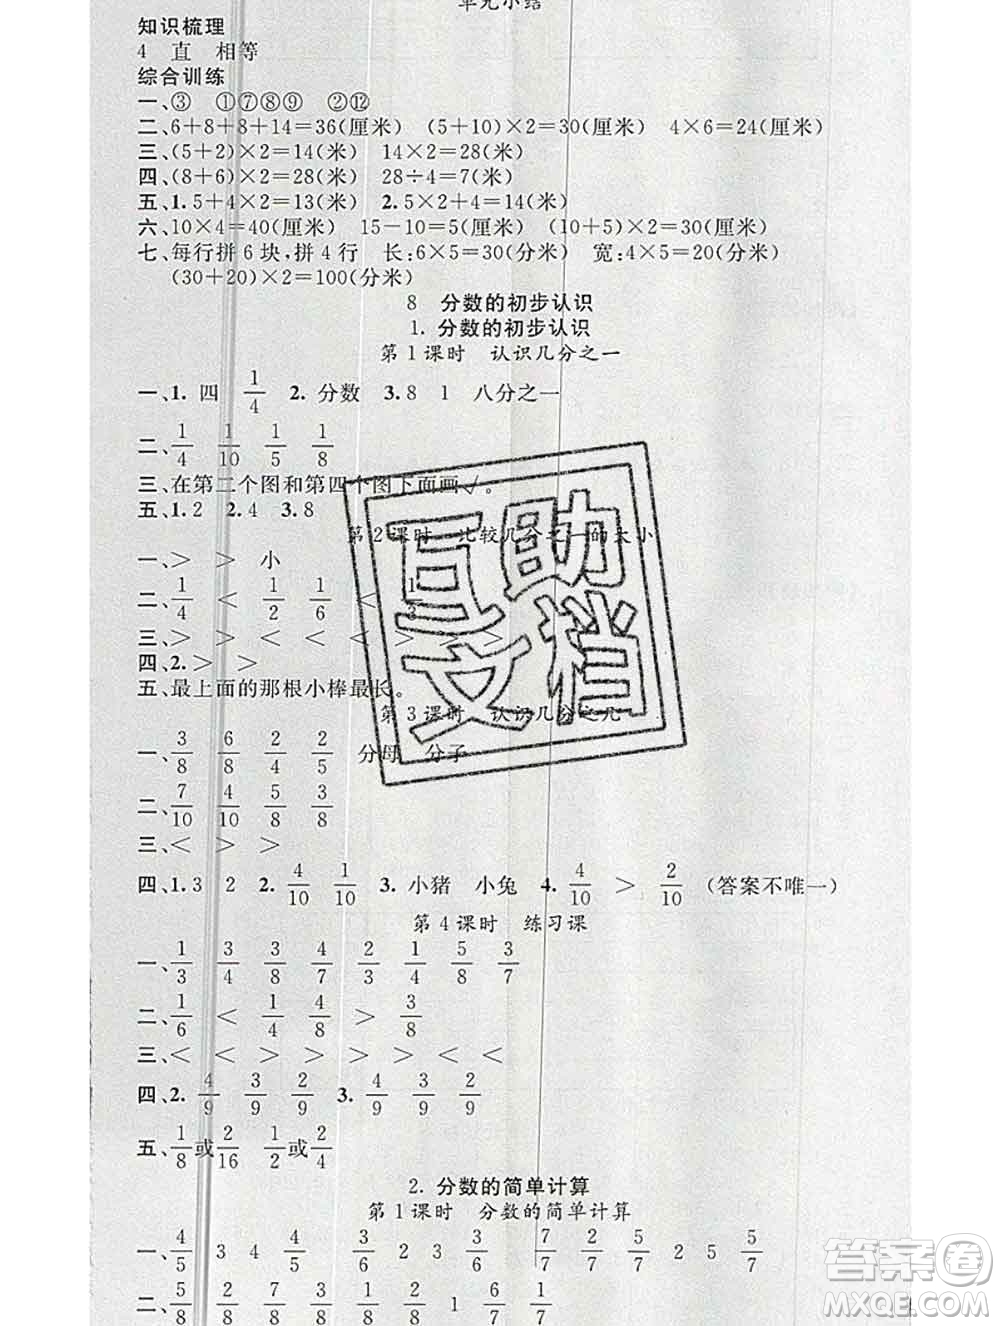 单元小结
知识梳理
4 直 相等
综合训练
一、③ ①⑦⑧⑨ ②⑫
二、6+8+8+14=36(厘米) (5+10)×2=30(厘米) 4×6=24(厘米)
三、(5+2)×2=14(米) 14×2=28(米)
四、(8+6)×2=28(米) 28÷4=7(米)
五、1.5+4×2=13(米) 2.5×2+4=14(米)
六、10×4=40(厘米) 15-10=5(厘米) (10+5)×2=30(厘米)
七、每行拼 6 块,拼 4 行 长:6×5=30(分米) 宽:4×5=20(分米)
(30+20)×2=100(分米)
8 分数的初步认识
1. 分数的初步认识
第 1 课时 认识几分之一
一、1. 四 1/4 2. 分数 3.8 1 八分之一
二、1/4 1/10 1/5 1/8
三、在第二个图和第四个图下面画√。
五、1.2 2.4 3.8
第 2 课时 比较几分之一的大小
一、> > 小
二、1/4 < 1/2 1/6 < 1/3
三、> < < < < < > >
四、2.> >
五、最上面的那根小棒最长。
第 3 课时 认识几分之几
一、3/8 6/8 2/4 2/5 分母 分子
二、7/10 4/10 5/8 3/8
三、< > >
四、1.3 2 2. 4/10 1/10 3. 小猪 小兔 4. 4/10 > 2/10 (答案不唯一)
第 4 课时 练习课
一、1/3 3/4 3/4 4/7 2/3 1/4 5/8 3/7
二、1/6 < 1/4 4/8 > 3/8
三、< < > > < > < <
四、2. 4/9 3/9 2/9 3. 4/9 3/9 2/9
五、1/8或2/16 1/2或2/4
2. 分数的简单计算
第 1 课时 分数的简单计算
一、4/5 3 4 4/5 3/6 2 3 3/6 7/7 2/7 5/7 2 5 5/7
二、5/8 2/8 7/8 3/8 1/8 2/8 1 6/7 1/7
互助文档
答案圈
MXQE.COM